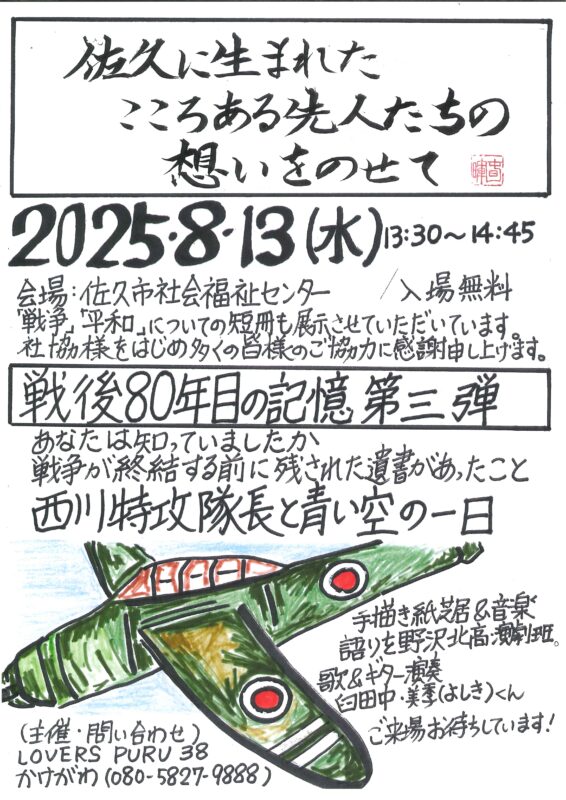 佐久に生まれた
こころある先人たちの
想いをのせて
2025・8・13(水)13:30～14:45
会場:佐久市社会福祉センター /入場無料
「戦争」「平和」についての短冊も展示させていただいています。
社協様をはじめ多くの皆様のご協力に感謝申し上げます。
戦後80年目の記憶 第三弾
あなたは知っていましたか
戦争が終結する前に残された遺書があったこと
西川特攻隊長と青い空の一日
手描き紙芝居&音楽
語りを野沢北高・演劇班。
歌&ギター演奏
臼田中・美季(よしき)くん
ご来場お待ちしています!
(主催・問い合わせ)
LOVERS PURU 38
かけがわ(080-5827-9888)